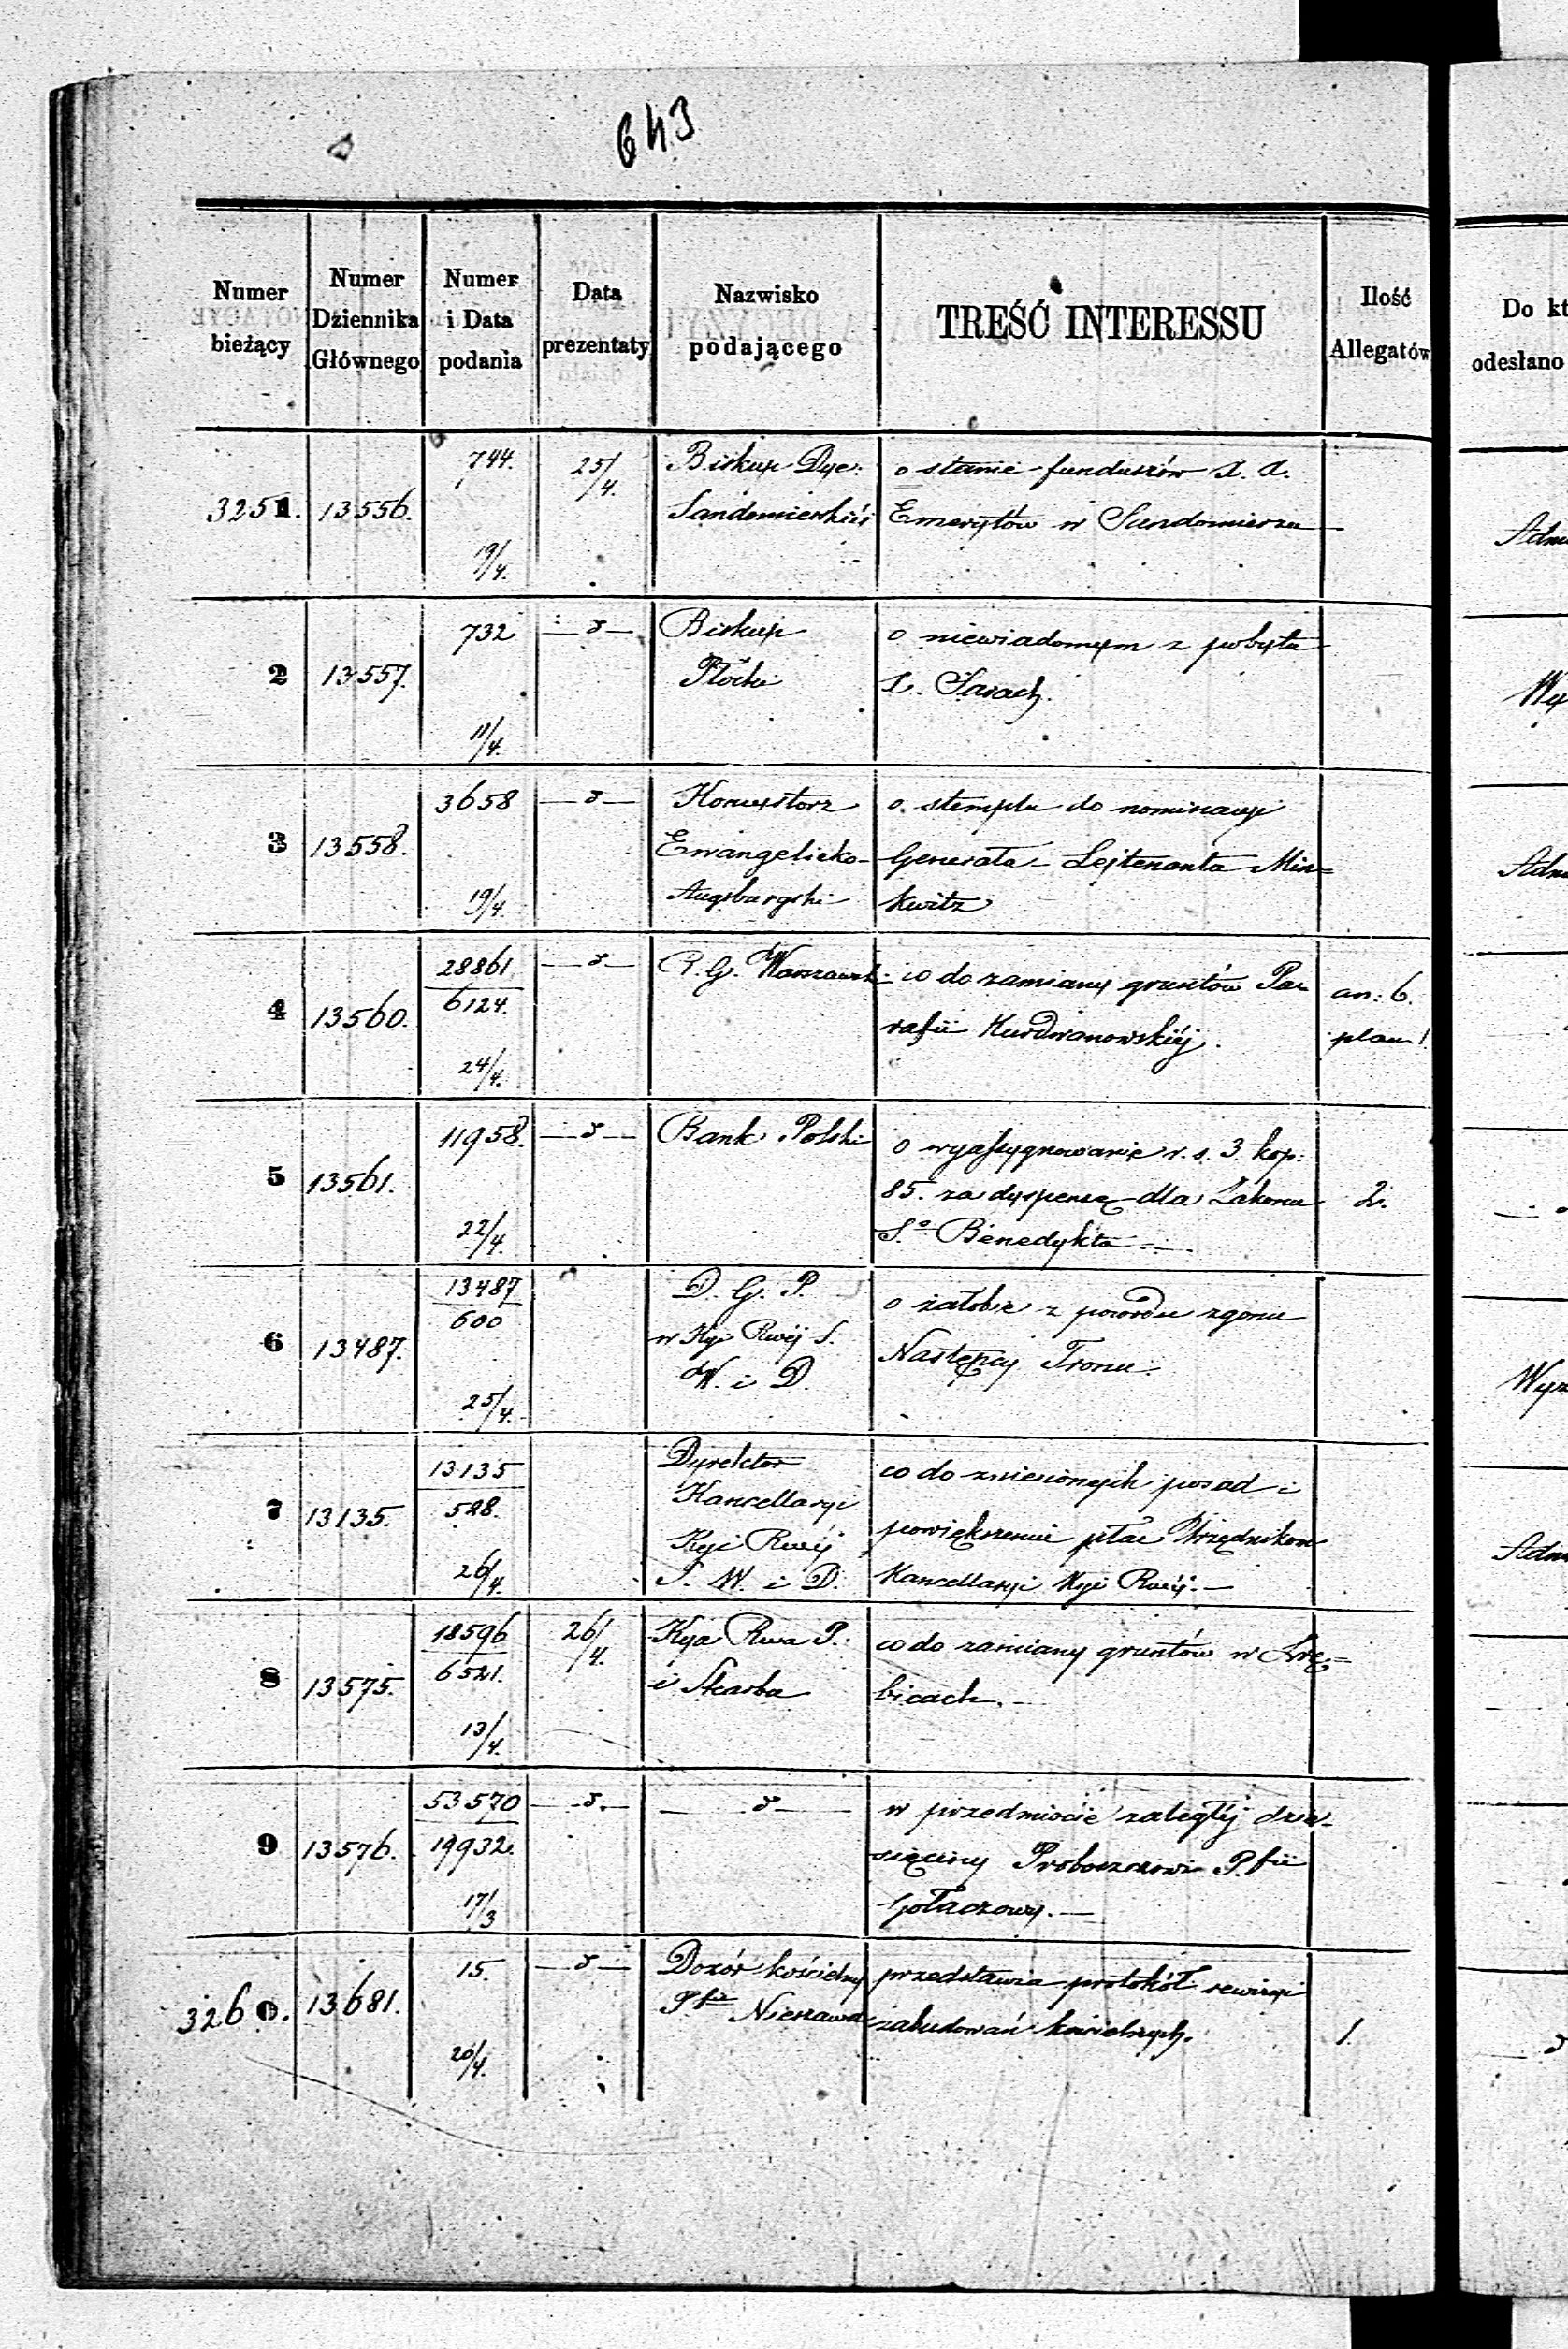 643
Numer bieżący | Numer Dziennika Głównego | Numer i Data podania | Data prezentaty | Nazwisko podającego | TREŚĆ INTERESSU | Ilość Allegatów | Do kt odesłano
3251. 13556. 744. 19/4. 25/4. Biskup Dyec: o stanie funduszów X. X.
Sandomierskiéj Emerytów w Sandomierzu —
Adm
2 13557. 732 11/4. — d — Biskup o niewiadomym z pobytu
Płocki X. Sarach.
Wy
3 13558. 3658 19/4. — d — Konsystorz o stemplu do nominacyi
Ewangelicko- Generała-Lejtenanta Min=
Augsburgski kwitz
Adm
4 13560. 28861/6124. 24/4. — d — R. G. Warszawsk: co do zamiany gruntów Pa- an: 6.
rafii Kurdwanowskiéj. plan 1
5 13561. 11958. 22/4. — d — Bank Polski o wyassygnowanie r. s. 3. kop:
85. za dyspensę dla Zakonu 2.
S.o Benedykta —
6 13487. 13487/600 25/4. D. G. P. o żałobie z powodu zgonu
w Kyi Rwéj S. Następcy Tronu.
W. i D.
Wyz
7 13135. 13135/528. 26/4. Dyrektor co do zniesionych posad i
Kancellaryi powiększenia płac Urzędnikom
Kyi Rwéj Kancellaryi Kyi Rwéj. —
S. W. i D.
Adm
8 13575. 18596/6521. 13/4. 26/4. Kya Rwa P. co do zamiany gruntów w
i Skarbu bicach. —
9 13576. 53570/19932. 17/3 — d. — — d — w przedmiocie zaległéj dzie-
sięciny Proboszczowi P.fii
Gołaczowy. —
3260. 13681. 15. 20/4. — d — Dozór kościelny przedstawia protokół rewizyi
P.fii Nieszawa zabudowań kościelnych. 1.